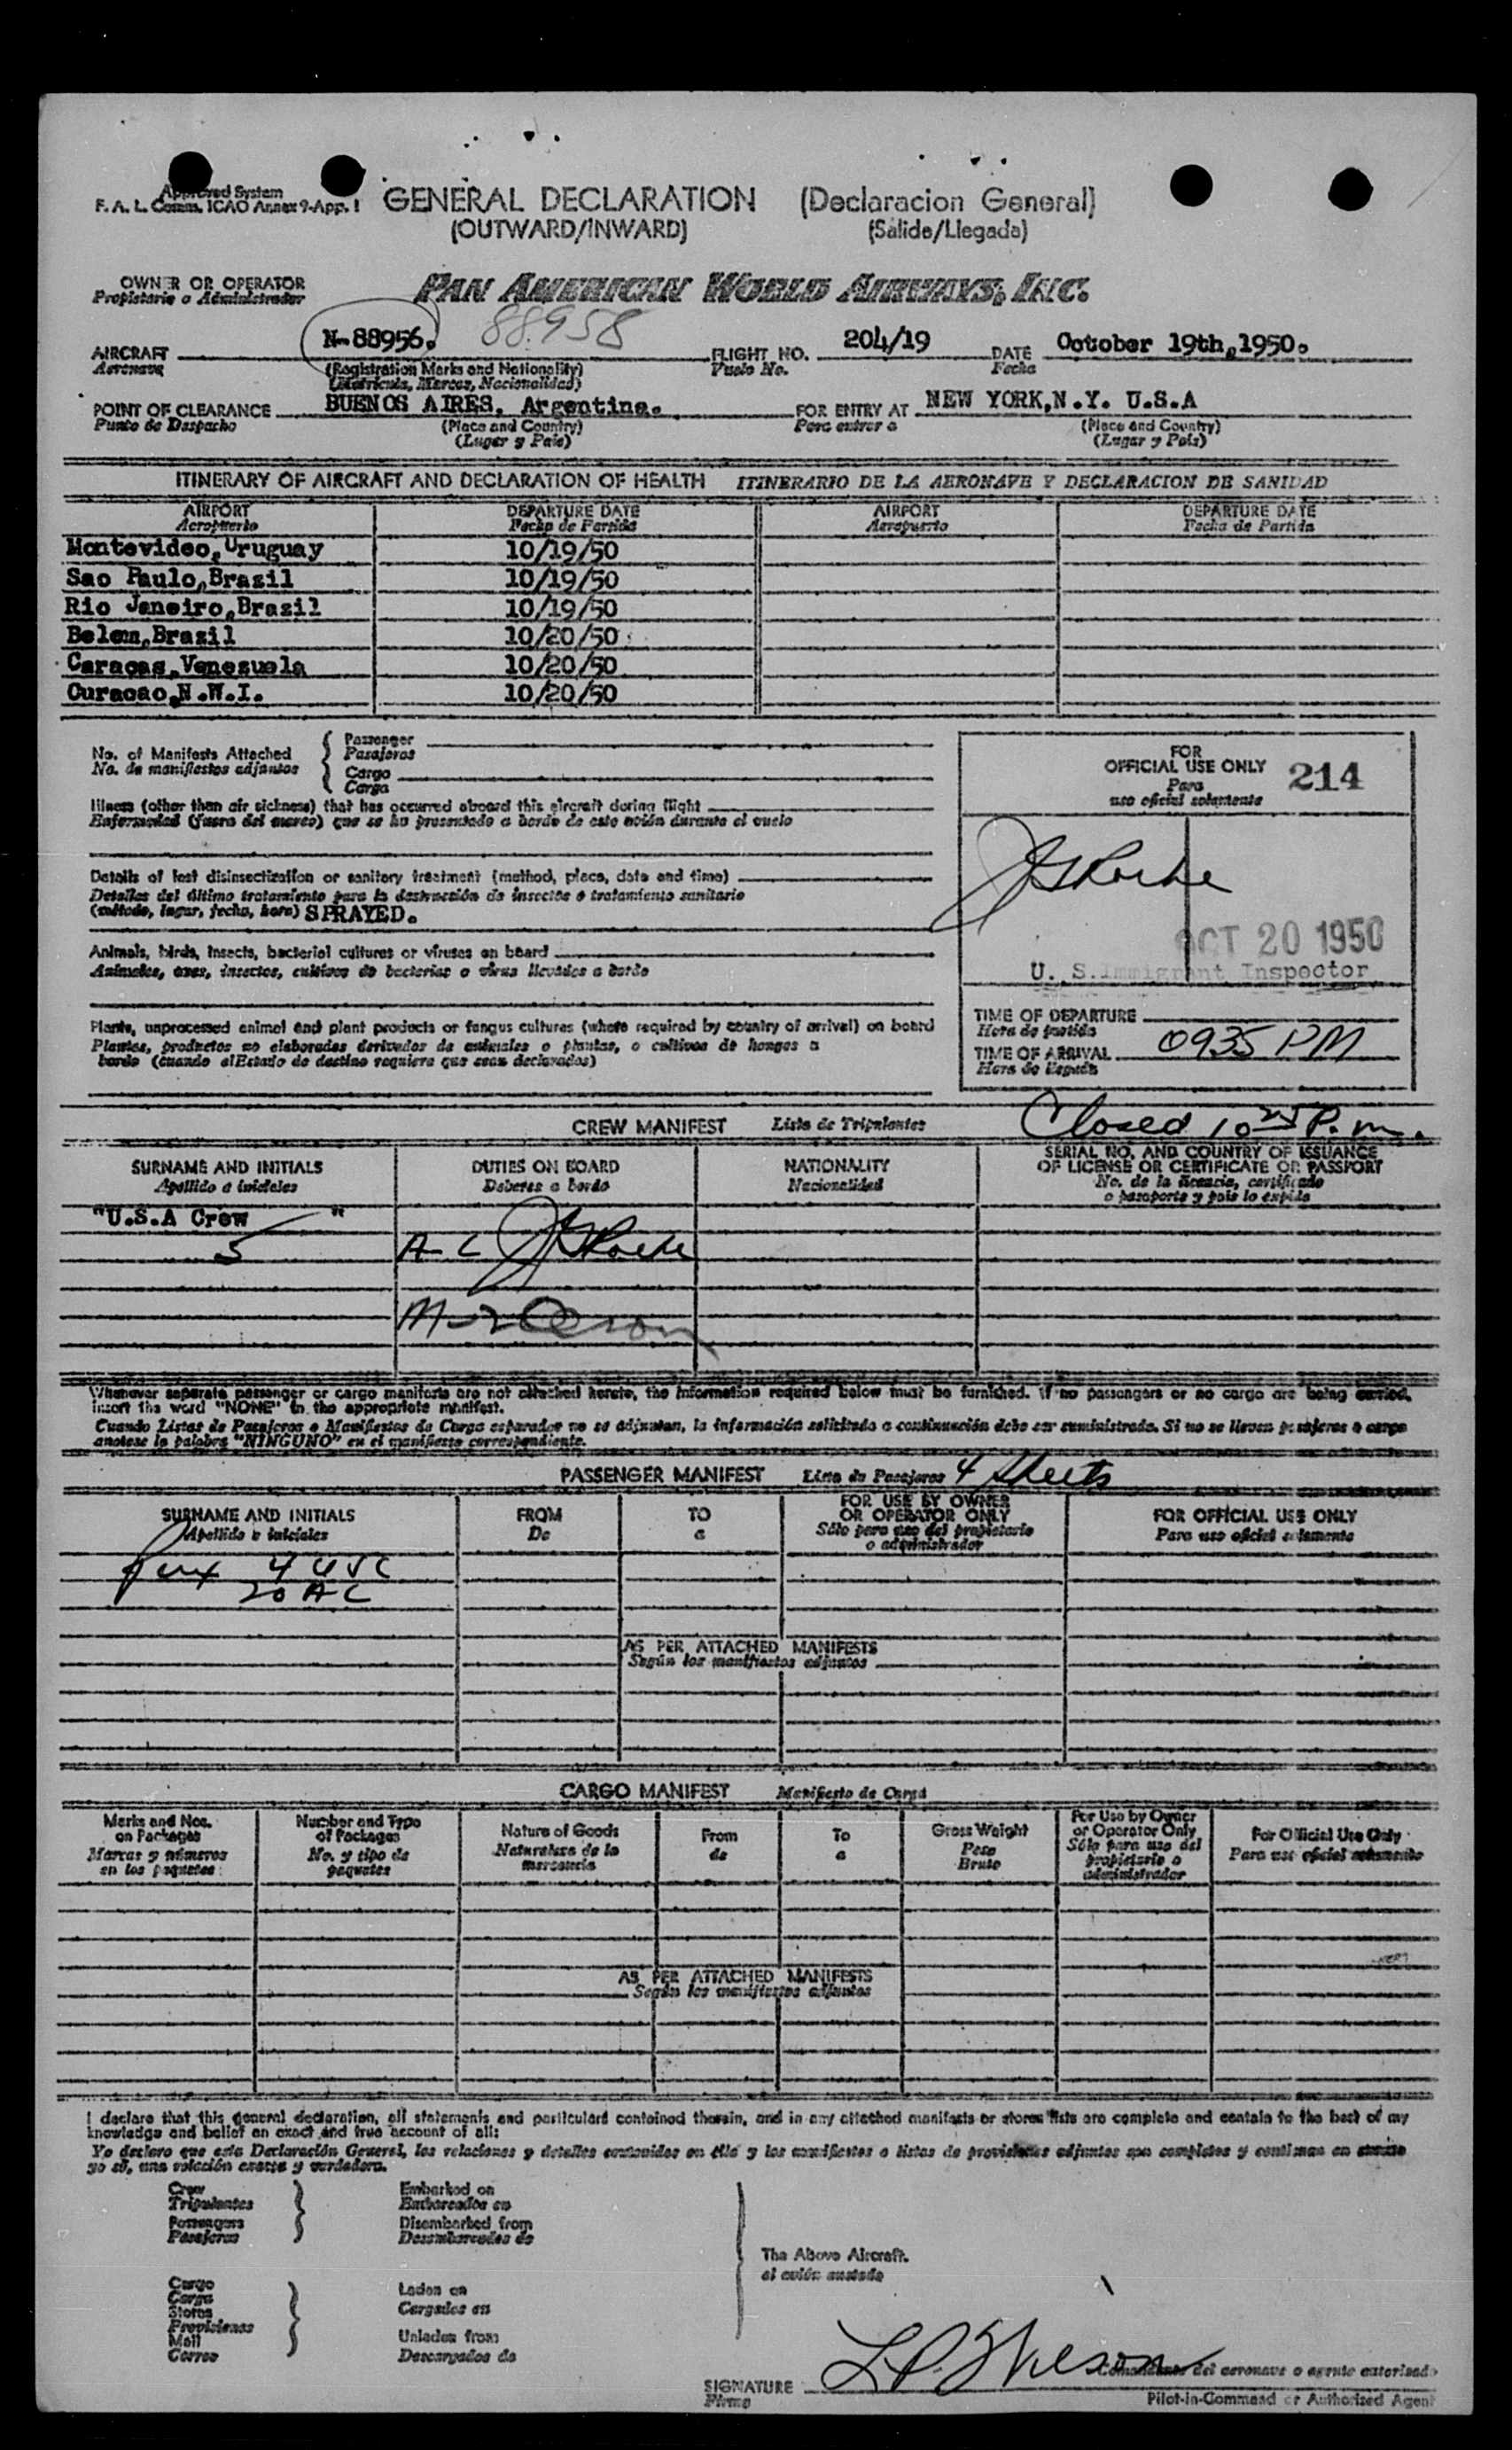 Approved System
F. A. L. Comm. ICAO Annex 9-App. 1
GENERAL DECLARATION (Declaracion General)
(OUTWARD/INWARD) (Salida/Llegada)
OWNER OR OPERATOR
Propietario o Administrador
PAN AMERICAN WORLD AIRWAYS, INC.
AIRCRAFT N-88956. 88958 FLIGHT NO. 204/19 DATE October 19th,1950.
Aeronave (Registration Marks and Nationality) Vuelo No. Fecha
(Matricula, Marcas, Nacionalidad)
POINT OF CLEARANCE BUENOS AIRES, Argentina. FOR ENTRY AT NEW YORK,N.Y. U.S.A
Punto de Despacho (Place and Country) Para entrar a (Place and Country)
(Lugar y Pais) (Lugar y Pais)
ITINERARY OF AIRCRAFT AND DECLARATION OF HEALTH ITINERARIO DE LA AERONAVE Y DECLARACION DE SANIDAD
AIRPORT DEPARTURE DATE AIRPORT DEPARTURE DATE
Aeropuerto Fecha de Partida Aeropuerto Fecha de Partida
Montevideo,Uruguay 10/19/50
Sao Paulo,Brazil 10/19/50
Rio Janeiro,Brazil 10/19/50
Belem,Brazil 10/20/50
Caracas,Venezuela 10/20/50
Curacao,N.W.I. 10/20/50
No. of Manifests Attached
No. de manifiestos adjuntos
Passenger
Pasajeros
Cargo
Carga
FOR
OFFICIAL USE ONLY 214
Para
uso oficial solamente
Illness (other than air sickness) that has occurred aboard this aircraft during flight
Enfermedad (fuera del mareo) que se ha presentado a bordo de este avión durante el vuelo
Details of last disinsectization or sanitary treatment (method, place, date and time)
Detalles del último tratamiento para la destrucción de insectos o tratamiento sanitario
(método, lugar, fecha, hora) SPRAYED.
OCT 20 1950
U. S. Immigrant Inspector
Animals, birds, insects, bacterial cultures or viruses on board
Animales, aves, insectos, cultivos de bacterias o virus llevados a bordo
Plants, unprocessed animal and plant products or fungus cultures (where required by country of arrival) on board
Plantas, productos no elaborados derivados de animales o plantas, o cultivos de hongos a
bordo (cuando el Estado de destino requiera que sean declarados)
TIME OF DEPARTURE
Hora de partida
TIME OF ARRIVAL 0935 PM
Hora de llegada
Closed 10 P.m.
CREW MANIFEST Lista de Tripulantes
SURNAME AND INITIALS DUTIES ON BOARD NATIONALITY SERIAL NO. AND COUNTRY OF ISSUANCE
OF LICENSE OR CERTIFICATE OR PASSPORT
Apellido e iniciales Deberes a bordo Nacionalidad No. de la licencia, certificado
o pasaporte y pais lo expide
"U.S.A Crew "
5 A-C
Whenever separate passenger or cargo manifests are not attached hereto, the information required below must be furnished. If no passengers or no cargo are being carried,
insert the word "NONE" in the appropriate manifest.
Cuando Listas de Pasajeros o Manifiestos de Carga separados no se adjuntan, la información solicitada a continuación debe ser suministrada. Si no se llevan pasajeros o carga
anotese la palabra "NINGUNO" en el manifiesto correspondiente.
PASSENGER MANIFEST Lista de Pasajeros 4 Sheets
SURNAME AND INITIALS FROM TO FOR USE BY OWNER
OR OPERATOR ONLY FOR OFFICIAL USE ONLY
Apellido e iniciales De a Sólo para uso del propietario
o administrador Para uso oficial solamente
4 USC
20 AC
AS PER ATTACHED MANIFESTS
Según los manifiestos adjuntos
CARGO MANIFEST Manifiesto de Carga
Marks and Nos.
on Packages
Marcas y números
en los paquetes
Number and Type
of Packages
No. y tipo de
paquetes
Nature of Goods
Naturaleza de la
mercancia
From
de
To
a
Gross Weight
Peso
Bruto
For Use by Owner
or Operator Only
Sólo para uso del
propietario o
administrador
For Official Use Only
Para uso oficial solamente
AS PER ATTACHED MANIFESTS
Según los manifiestos adjuntos
I declare that this general declaration, all statements and particulars contained therein, and in any attached manifests or stores lists are complete and contain to the best of my
knowledge and belief an exact and true account of all:
Yo declaro que esta Declaración General, las relaciones y detalles contenidos en ella y los manifiestos o listas de provisiones adjuntos son completos y contienen en cuanto
yo sé, una relación exacta y verdadera.
Crew
Tripulantes
Passengers
Pasajeros
Embarked on
Embarcados en
Disembarked from
Desembarcados de
The Above Aircraft.
el avión anotado
Cargo
Carga
Stores
Provisiones
Mail
Correo
Laden on
Cargados en
Unladen from
Descargados de
Comandante del aeronave o agente autorizado
SIGNATURE
Firma
Pilot-in-Command or Authorized Agent